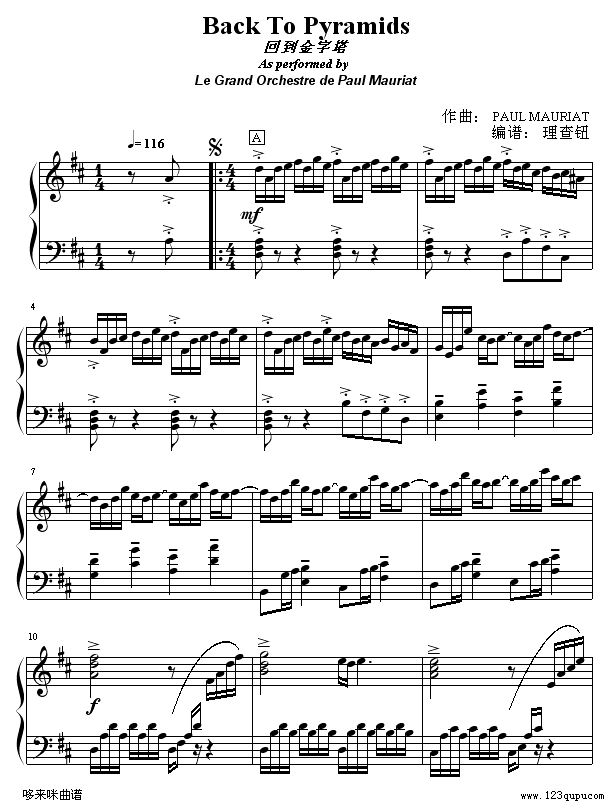 Back To Pyramids
回到金字塔
As performed by
Le Grand Orchestre de Paul Mauriat
作曲： PAUL MAURIAT
编谱： 理查钮
♩= 116
A
1
4
4
4
mf
4
7
10
f
哆来咪曲谱
www.123qupu.com